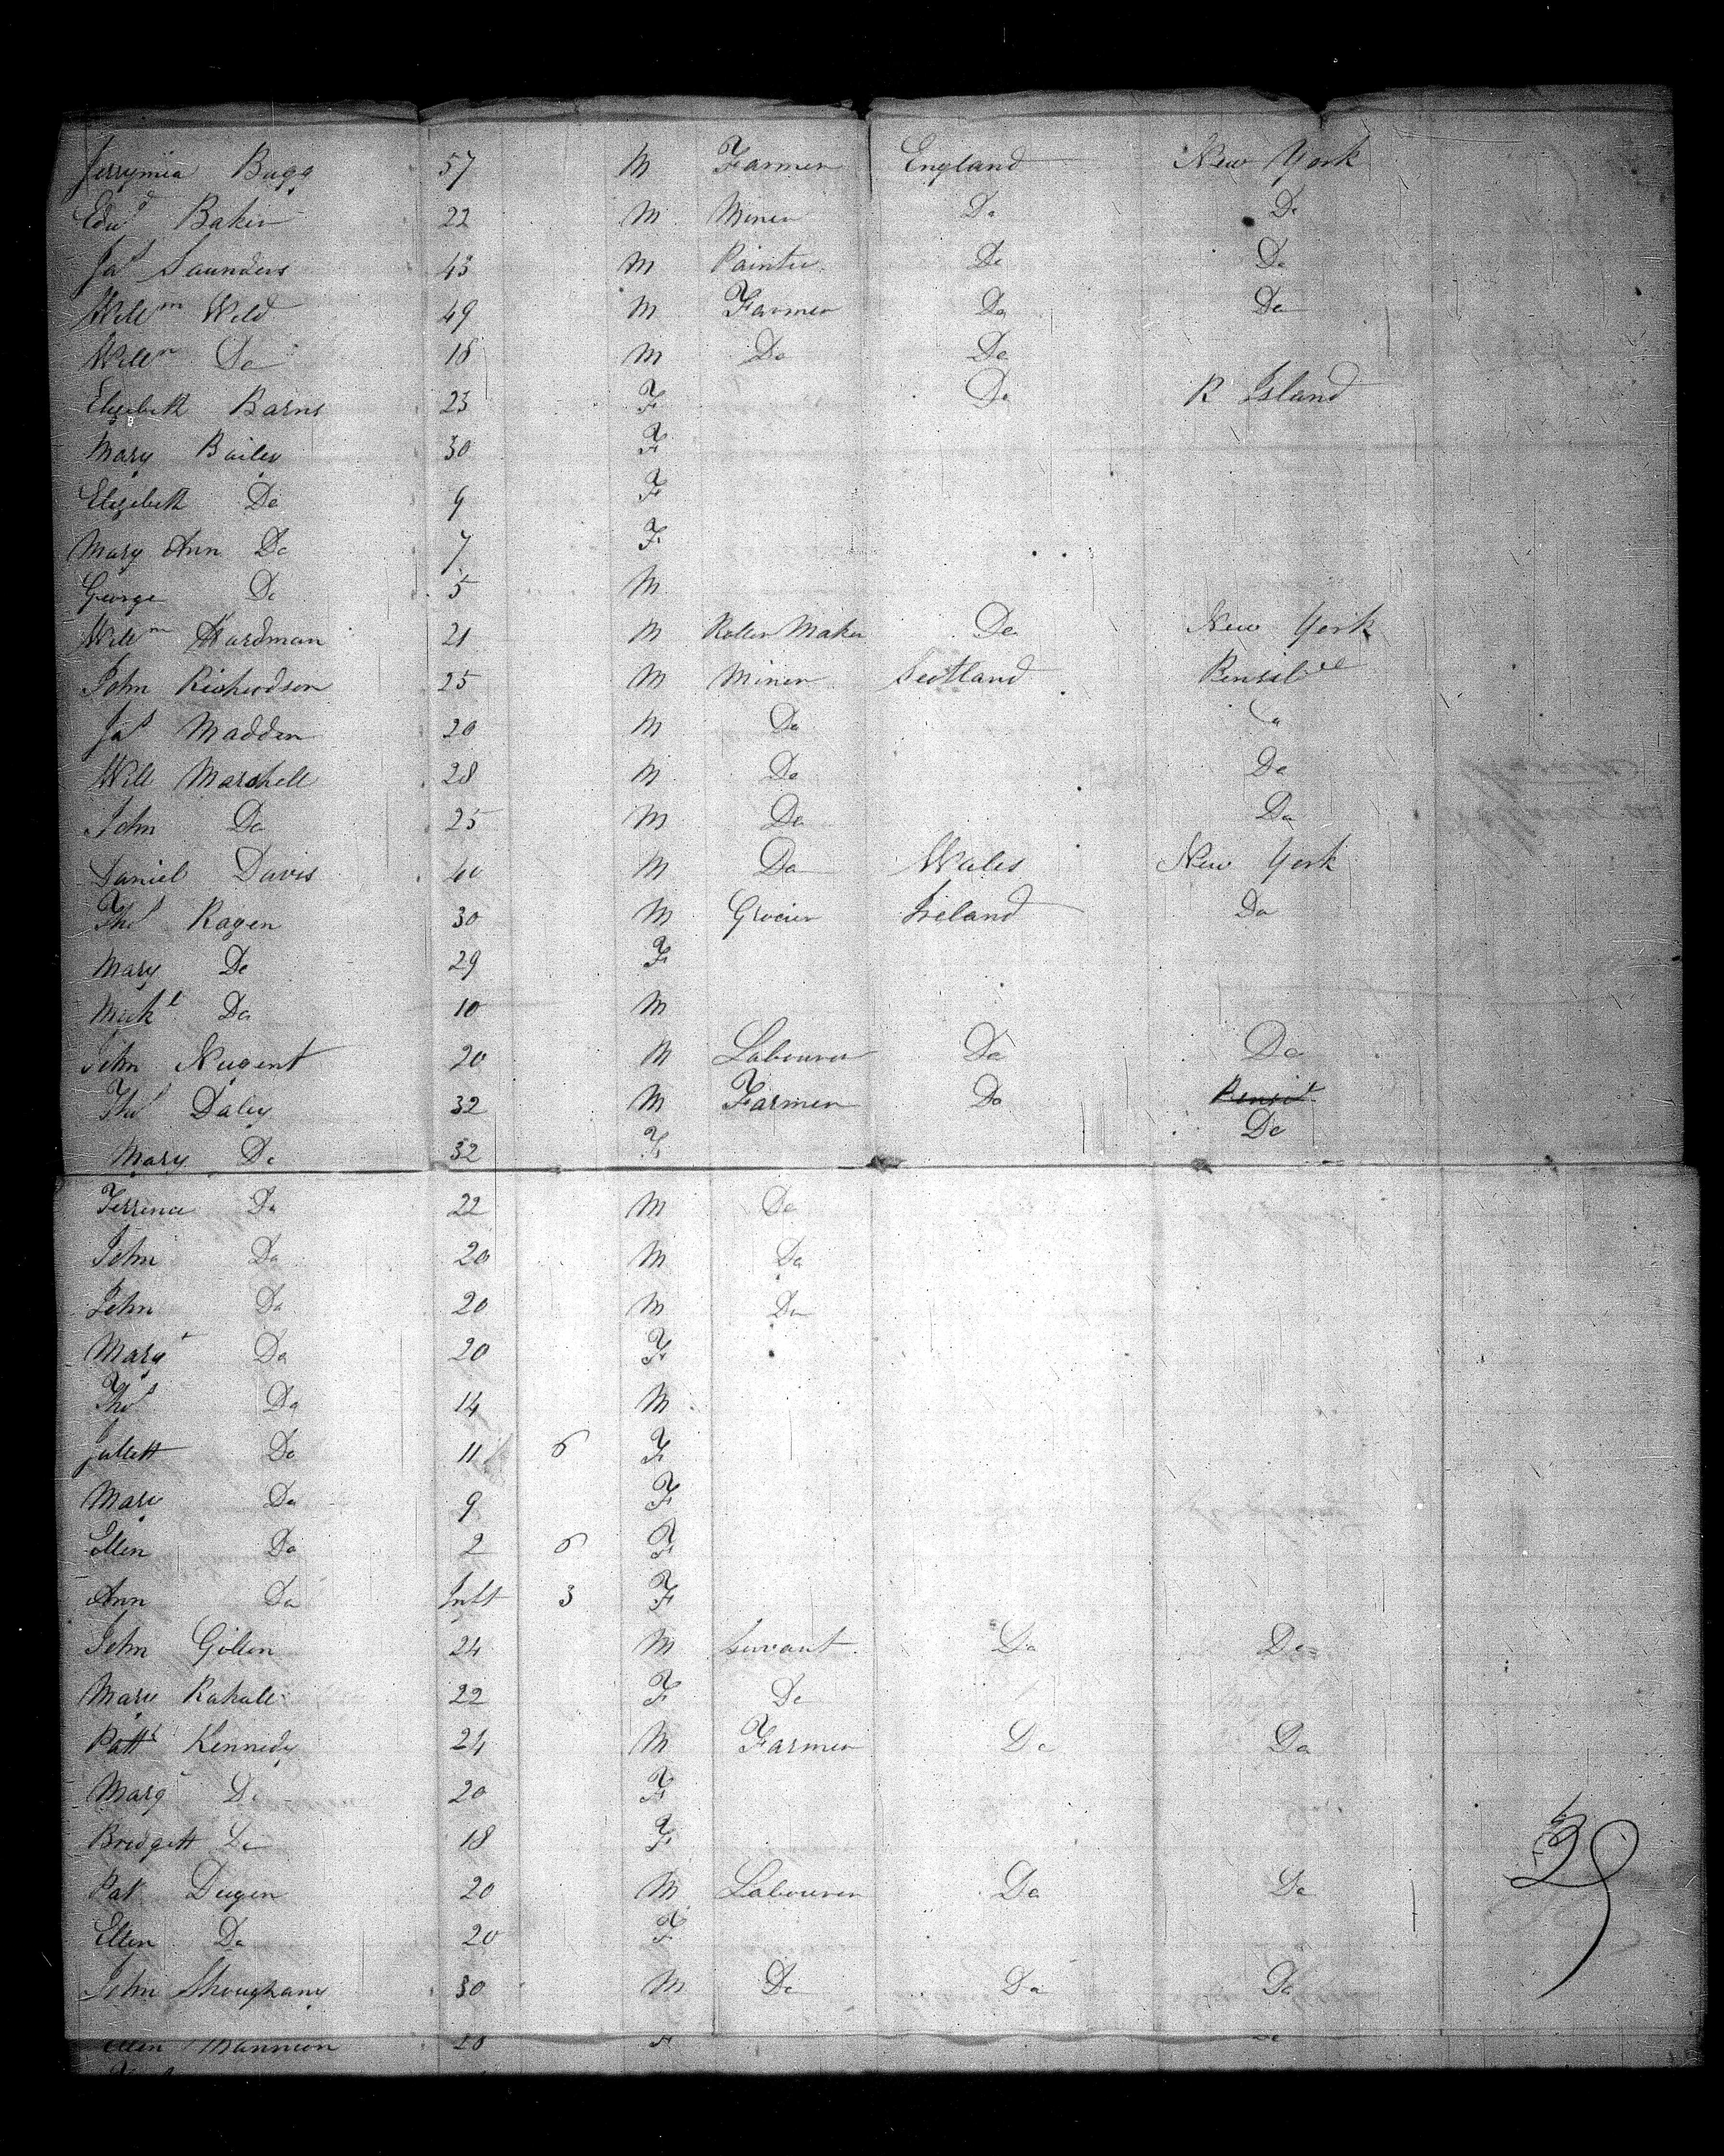 Jerrymia Bugg 57 M Farmer England New York
Edwd Baker 22 M Miner Do Do
Jas Saunders 43 M Painter Do Do
Willm Wild 49 M Farmer Do Do
Willm Do 18 M Do Do
Elizebeth Barns 23 F Do R Island
Mary Bailey 30 F
Elizebeth Do 9 F
Mary Ann Do 7 F
George Do 5 M
Willm Hardman 21 M Roller Maker Do New York
John Richardson 25 M Miner Scotland
Jas Madden 20 M Do
Will Marshell 28 M Do Do
John Do 25 M Do Do
Daniel Davis 40 M Do Wales New York
Thos Ragen 30 M Grocier Ireland Do
Mary Do 29 F
Michl Do 10 M
John Nugent 20 M Labourer Do Do
Thos Daley 32 M Farmer Do
Do
Mary Do 32 F
Terrence Do 22 M Do
John Do 20 M Do
John Do 20 M Do
Margt Do 20 F
Thos Do 14 M
Juliett Do 11 6 F
Mary Do 9 F
Ellen Do 2 6 F
Ann Do Inft 3 F
John Gillen 24 M Servant Do Do
Mary 22 F Do
Kennedy 24 M Farmer Do Do
Margt Do 20 F
Bridgett Do 18 F
Pat Dugen 20 M Labourer Do Do
Ellen Do 20 F
John Shoughany 30 M Do Do Do
Ellen Mannion 20 F